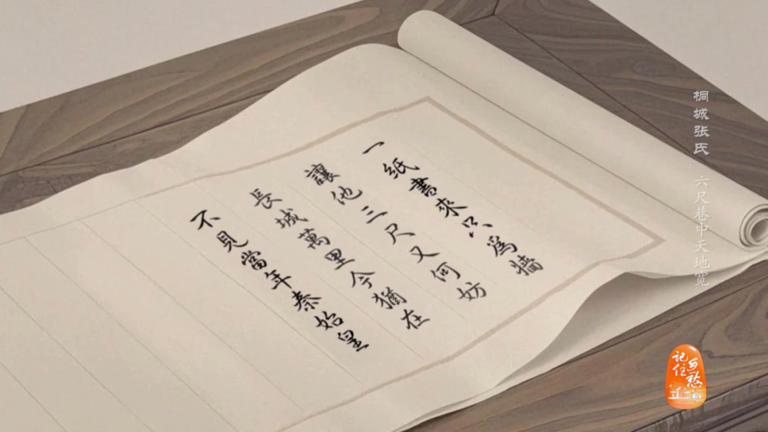 一紙書來只為牆
讓他三尺又何妨
長城萬里今猶在
不見當年秦始皇
桐城张氏 六尺巷中天地宽
记住乡愁